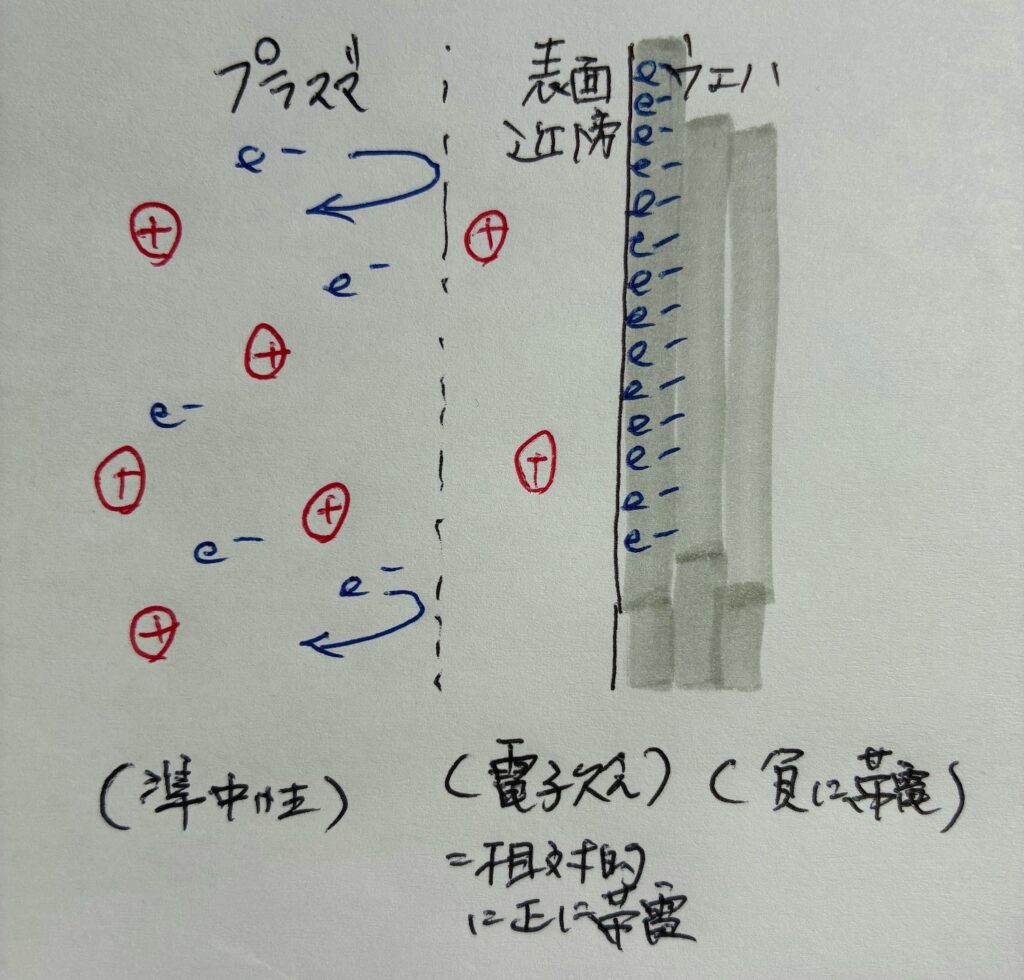 プラズマ
表面
近傍
ウエハ
e-
e-
e-
e-
e-
+
+
+
+
+
+
+
e-
e-
e-
e-
e-
e-
e-
e-
e-
e-
e-
e-
e-
e-
(準中性)
(電子欠乏)
=相対的
に正に帯電
(負に帯電)